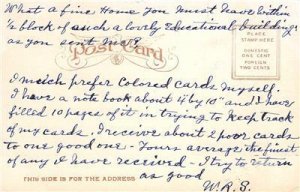 What a fine Home you must have within
½ block of such a lovely Educational building
as you sent me?
Post Card
PLACE
STAMP HERE
DOMESTIC
ONE CENT
FOREIGN
TWO CENTS
I much prefer Colored Cards myself.
I have a note book about 4 by 10" and I have
filled 10 pages of it in trying to keep track
of my cards. I receive about 2 poor cards
to one good one - Yours average the finest
of any I have received - I try to return
as good
W.R.S.
THIS SIDE IS FOR THE ADDRESS